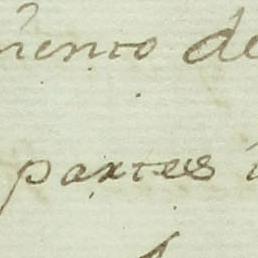 miento de
partes